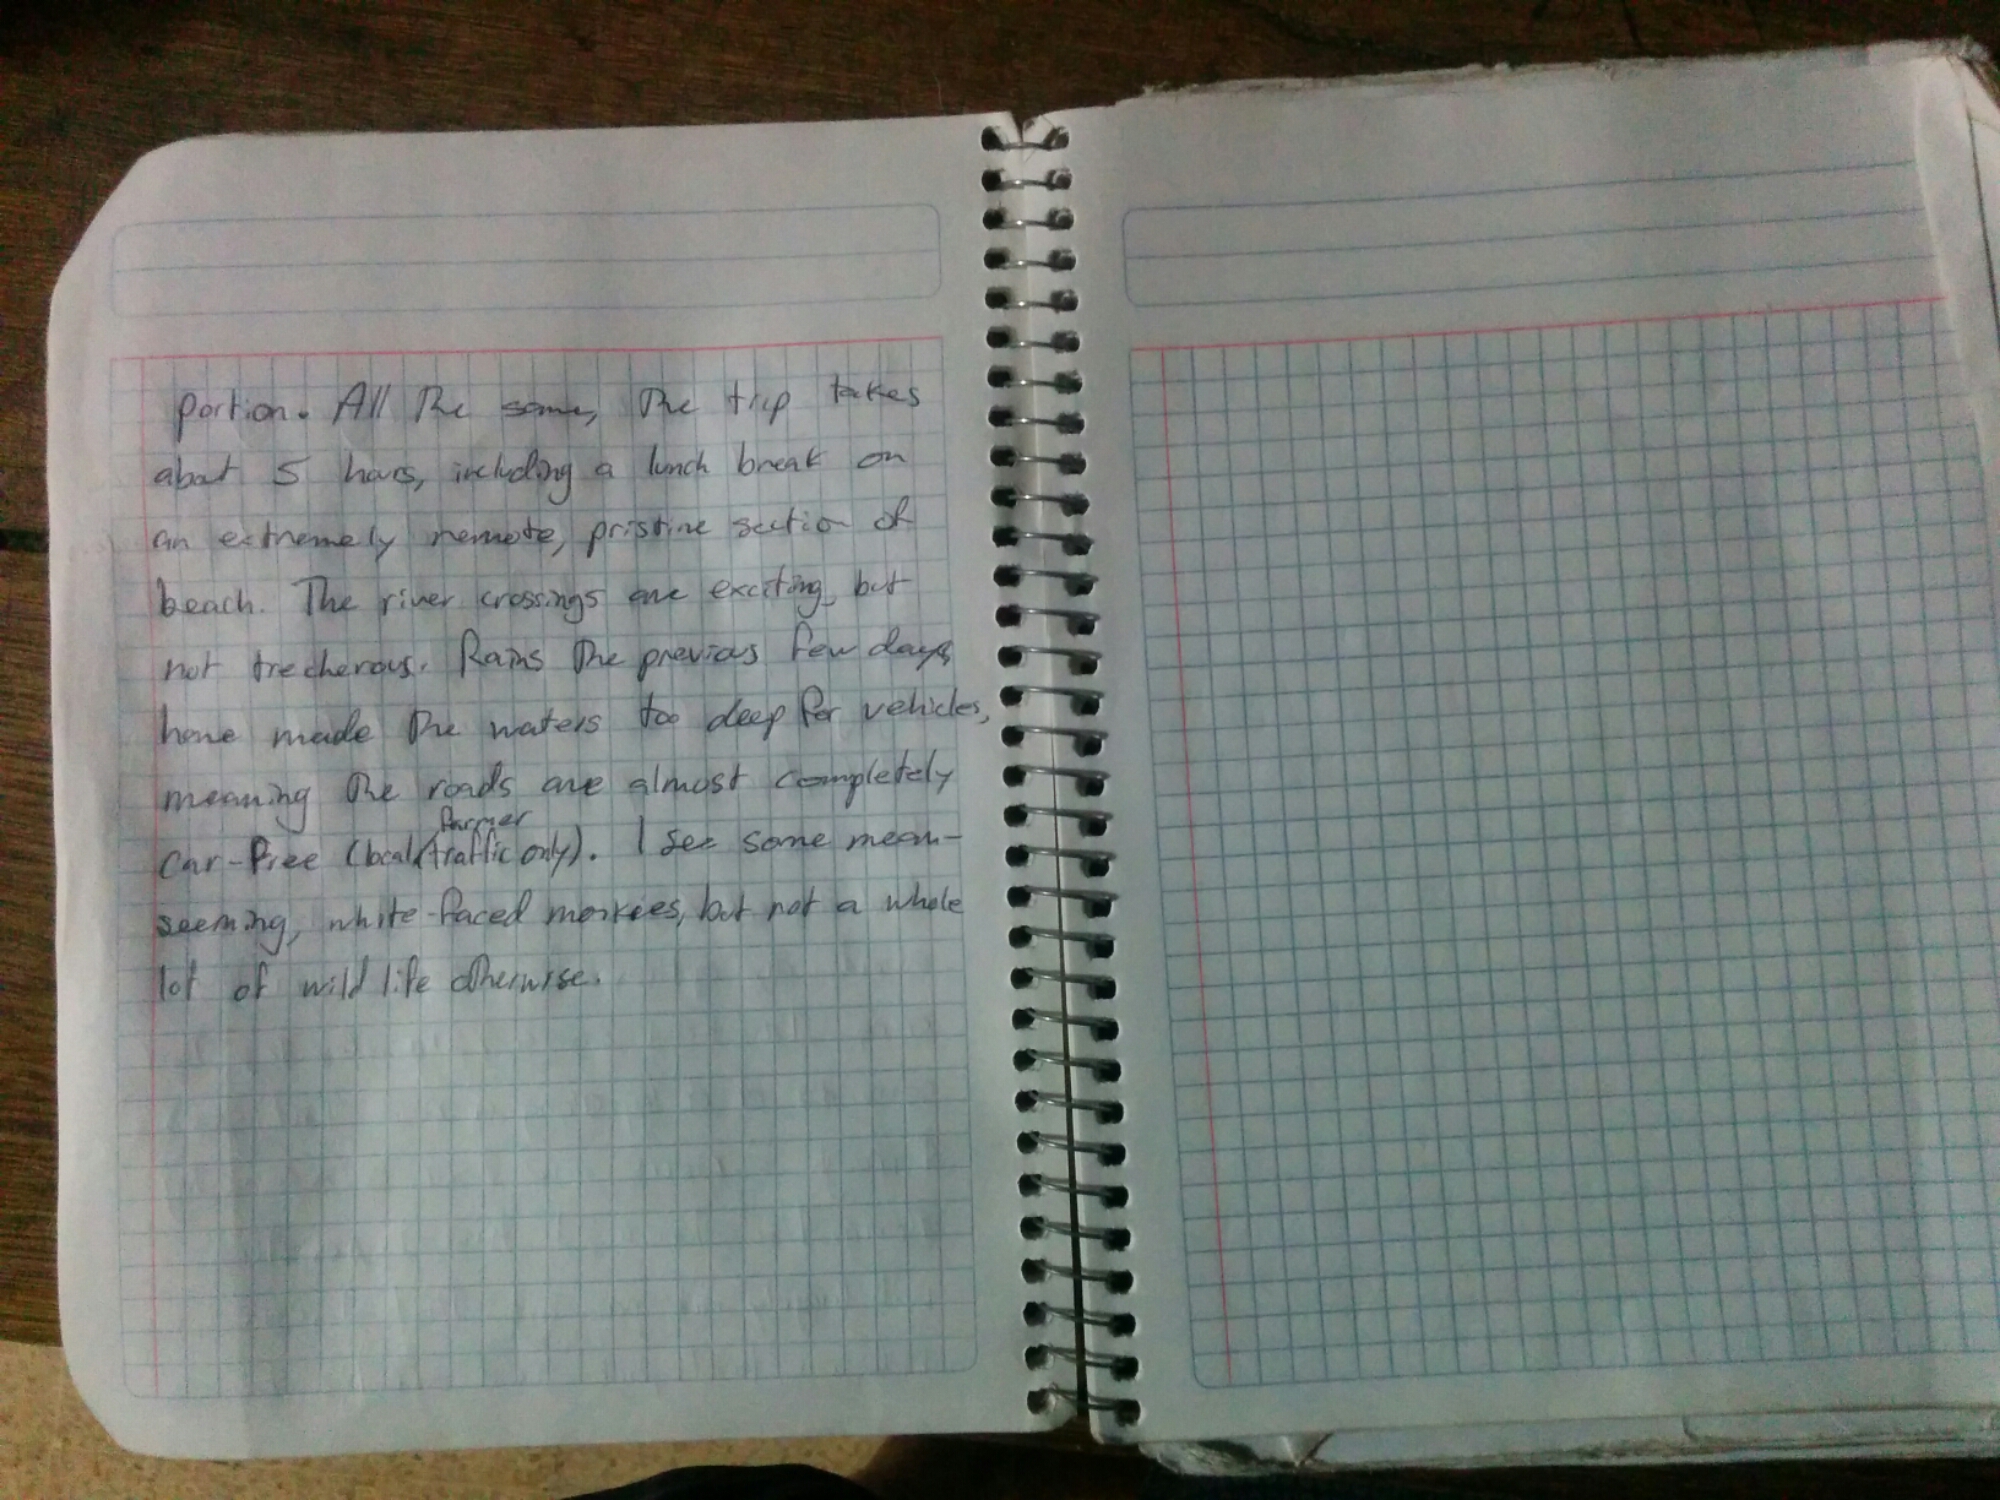 portion. All the same, the trip takes
about 5 hours, including a lunch break on
an extremely remote, pristine section of
beach. The river crossings are exciting, but
not trecherous. Rains the previous few days
have made the waters too deep for vehicles,
meaning the roads are almost completely
farmer
car-free (local/traffic only). I see some mean-
seeming, white-faced monkies, but not a whole
lot of wild life otherwise.